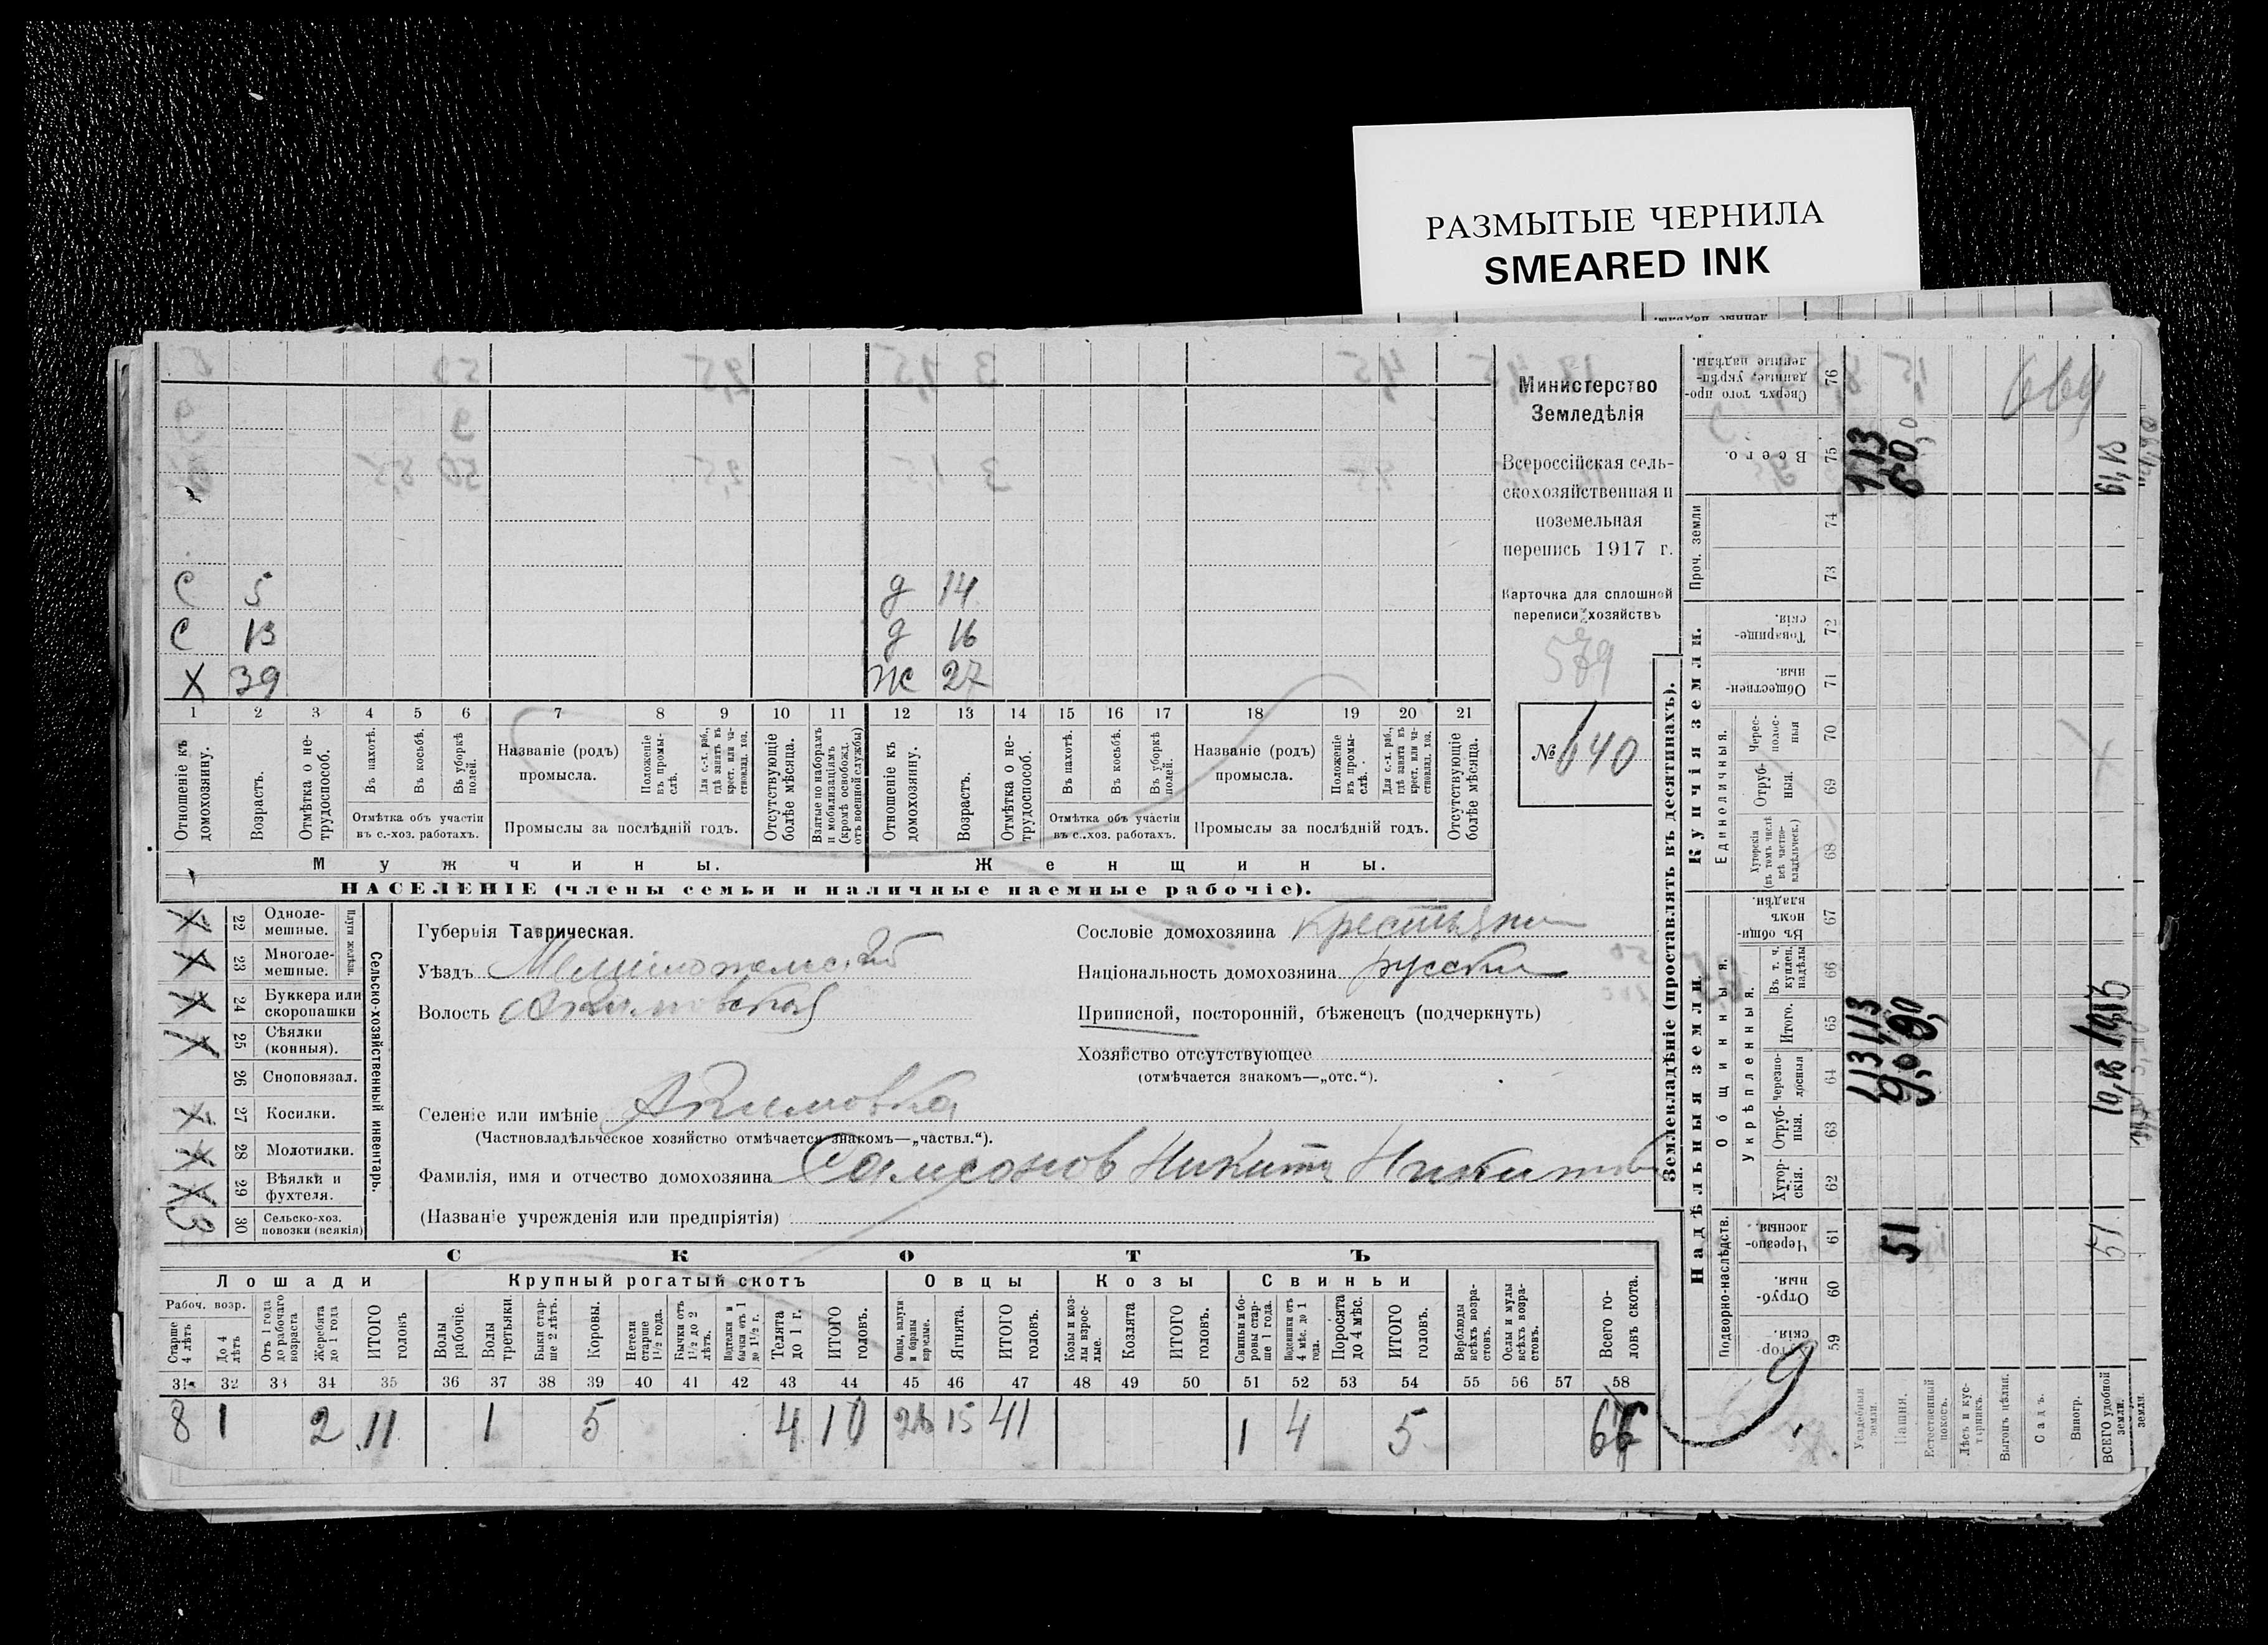 РАЗМЫТЫЕ ЧЕРНИЛА
SMEARED INK
Министерство
Земледѣлія
Всероссійская сель-
скохозяйственная и
поземельная
перепись 1917 г.
Карточка для сплошной
переписи хозяйствъ
579
№ 640
С 5 д 14
С 13 д 16
Х 39 Ж 27
1 2 3 4 5 6 7 8 9 10 11 12 13 14 15 16 17 18 19 20 21
Отношеніе къ домохозяину.
Возрастъ.
Отмѣтка о не-трудоспособ.
Въ пахотѣ.
Въ косьбѣ.
Въ уборкѣ полей.
Отмѣтка объ участіи
въ с.-хоз. работахъ.
Названіе (родъ)
промысла.
Положеніе въ промы-слѣ.
Для с.-х. раб., гдѣ занятъ въ крест. или ча-стновлад. хоз.
Промыслы за послѣдній годъ.
Отсутствующіе болѣе мѣсяца.
Взятые по наборамъ и мобилизаціямъ (кромѣ освобожд. отъ военной службы)
Отношеніе къ домохозяину.
Возрастъ.
Отмѣтка о не-трудоспособ.
Въ пахотѣ.
Въ косьбѣ.
Въ уборкѣ полей.
Отмѣтка объ участіи
въ с.-хоз. работахъ.
Названіе (родъ)
промысла.
Положеніе въ промы-слѣ.
Для с.-х. раб., гдѣ занятъ въ крест. или ча-стновлад. хоз.
Промыслы за послѣдній годъ.
Отсутствующіе болѣе мѣсяца.
Мужчины. Женщины.
НАСЕЛЕНІЕ (члены семьи и наличные наемные рабочіе).
Сельско-хозяйственный инвентарь.
Плуги желѣзн.
22 Одноле-мешные.
23 Многоле-мешные.
24 Буккера или скоропашки
25 Сѣялки (конныя).
26 Сноповязал.
27 Косилки.
28 Молотилки.
29 Вѣялки и фухтеля.
3 30 Сельско-хоз. повозки (всякія)
Губернія Таврическая.
Уѣздъ Мелитопольский
Волость Акимовская
Селеніе или имѣніе Акимовка
(Частновладѣльческое хозяйство отмѣчается знакомъ—„частвл.“).
Фамилія, имя и отчество домохозяина Самсонов Никита Никитов
(Названіе учрежденія или предпріятія)
Сословіе домохозяина крестьянин
Національность домохозяина русский
Приписной, посторонній, бѣженецъ (подчеркнуть)
Хозяйство отсутствующее
(отмѣчается знакомъ—„отс.“).
СКОТЪ
Лошади Крупный рогатый скотъ Овцы Козы Свиньи
Рабоч. возр.
Старше 4 лѣтъ
До 4 лѣтъ
Отъ 1 года до рабочаго возраста
Жеребята до 1 года
ИТОГО головъ
Волы рабочіе.
Волы третьяки.
Быки стар-ше 2 лѣтъ.
Коровы.
Нетели старше 1½ года.
Бычки отъ 1½ до 2 лѣтъ.
Подтелки и бычки отъ 1 до 1½ г.
Телята до 1 г.
ИТОГО головъ.
Овцы, валухи и бараны взрослые.
Ягнята.
ИТОГО головъ.
Козы и коз-лы взрос-лые.
Козлята
ИТОГО головъ.
Свиньи и бо-ровы стар-ше 1 года.
Подсвинки отъ 4 мѣс. до 1 года.
Поросята до 4 мѣс.
ИТОГО головъ.
Верблюды всѣхъ возра-стовъ.
Ослы и мулы всѣхъ возра-стовъ.
Всего го-ловъ скота.
31 32 33 34 35 36 37 38 39 40 41 42 43 44 45 46 47 48 49 50 51 52 53 54 55 56 57 58
8 1 2 11 1 5 4 10 26 15 41 1 4 5
Землевладѣніе (проставлять въ десятинахъ).
Надѣльныя земли. Купчія земли.
Подворно-наслѣдств.
Общинныя.
Укрѣпленныя.
Единоличныя.
Проч. земли
Хутор-скія. 59
Отруб-ныя. 60
Черезпо-лосныя 61
Хутор-скія. 62
Отруб-ныя. 63
Черезпо-лосныя 64
Итого. 65
Въ т. ч. куплен. надѣлы 66
Въ общи-номъ владѣн. 67
Хуторскія (въ томъ числѣ всѣ частно-владѣльческ.) 68
Отруб-ныя. 69
Черес-полос-ныя 70
Обществен-ныя. 71
Товарище-скія. 72
73
74
Всего. 75
Сверхъ того про-данные, укрѣп-ленные надѣлы. 76
Усадебныя земли.
Пашня.
Естественный покосъ.
Лѣсъ и кус-тарникъ.
Выгонъ цѣлин.
Садъ.
Виногр.
ВСЕГО удобной земли.
1,13
51
51
61,13
9